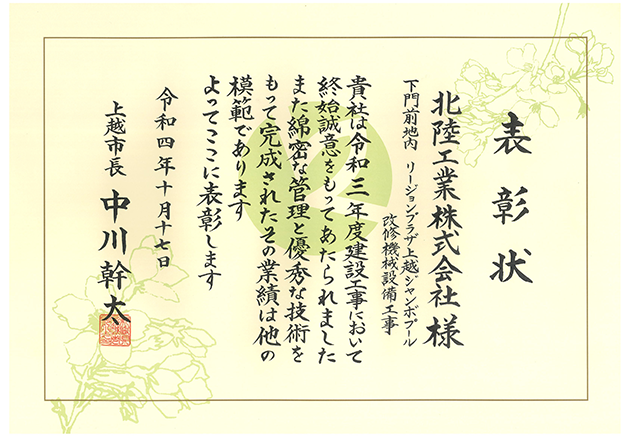 表彰状
北陸工業株式会社 様
下門前地内 リージョンプラザ上越ジャンボプール
改修機械設備工事
貴社は令和三年度建設工事において
終始誠意をもってあたられました
また綿密な管理と優秀な技術を
もって完成されたその業績は他の
模範であります
よってここに表彰します
令和四年十月十七日
上越市長 中川幹太